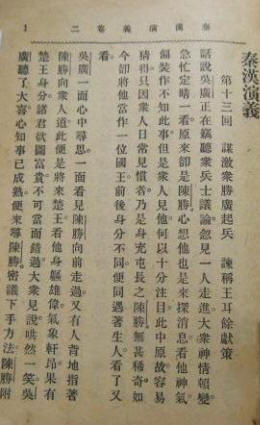 秦漢演義
秦漢演義卷二
1
第十三回　謀激衆勝廣起兵　諫稱王耳餘獻策
話說吳廣正在竊聽衆兵士議論忽見一人走進大衆神情頓變
急忙定睛一看原來卻是陳勝心想他也是來探消息看他神氣
偏裝作不知此事但是衆人見他何以十分注目此中原故容易
猜得只因衆人日常見慣者乃是身充屯長之陳勝無甚稀奇如
今卻將他當作一位國王前後身分不同便同遇著生人看了又
看
吳廣一面心中尋思一面看見陳勝向前走過又有人背地指著
陳勝向衆人道此便是將來楚王看他身軀雄偉氣象軒昂果有
楚王身分諸君欲圖富貴不可當面錯過大衆見說哄然一笑吳
廣聽了大喜心知事已成熟便來尋陳勝密議下手方法陳勝附